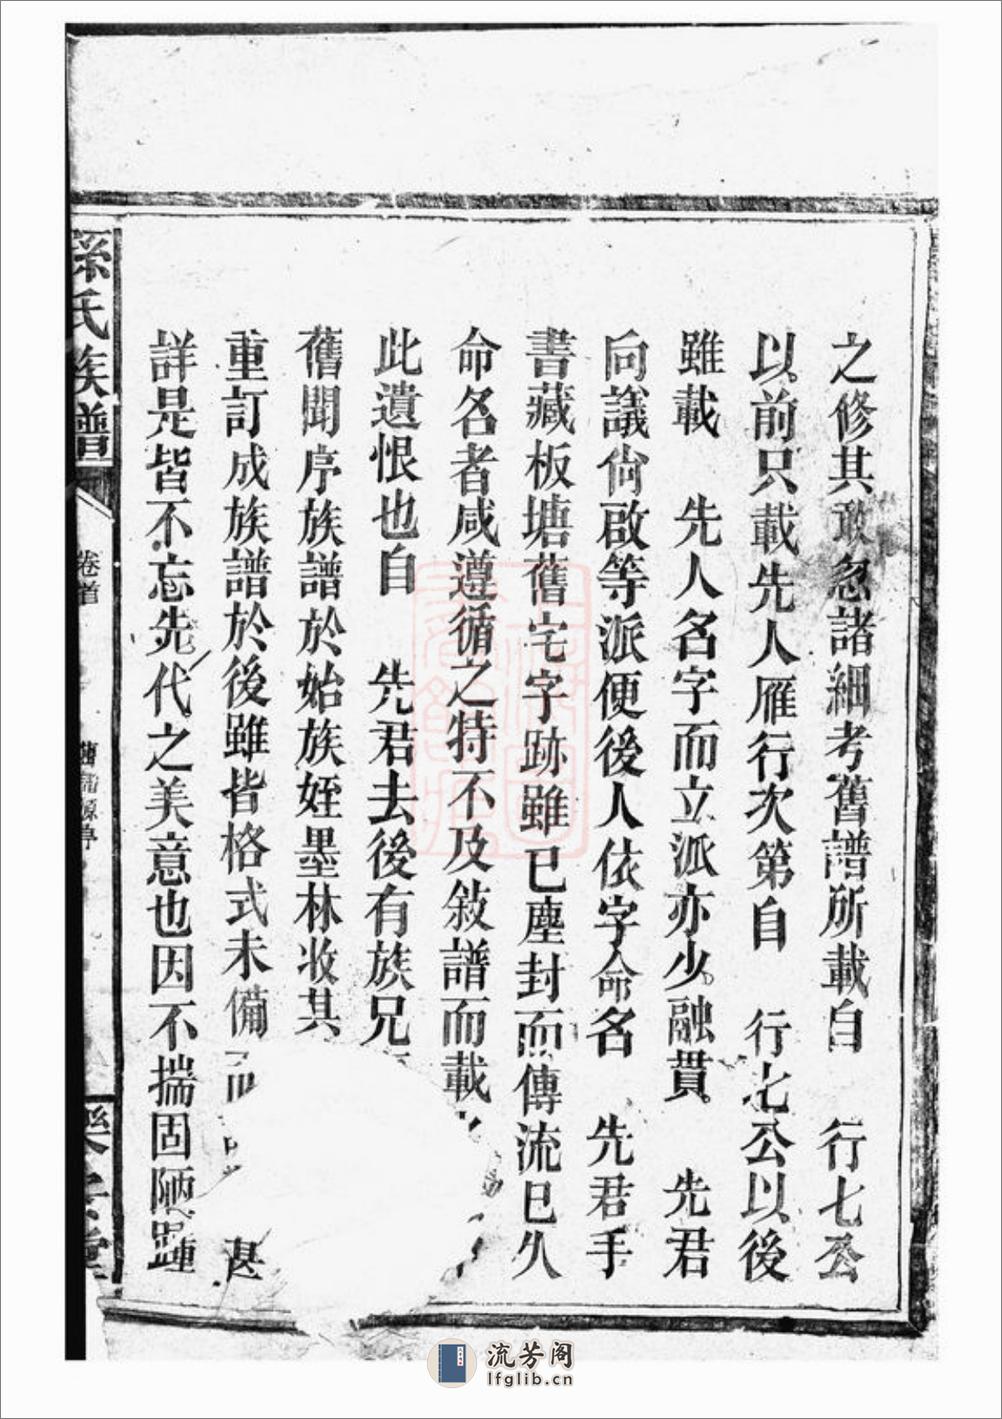 之修其敢忽諸細考舊譜所載自　行七公
以前只載先人雁行次第自　行七公以後
雖載　先人名字而立派亦少融貫　先君
向議尙啟等派便後人依字命名　先君手
書藏板塘舊宅字跡雖已塵封而傳流已久
命名者咸遵循之特不及敍譜而載
此遺恨也自　先君去後有族兄
舊聞序族譜於始族姪墨林收其
重訂成族譜於後雖皆格式未備而　甚
詳是皆不忘先代之美意也因不揣固陋踵
孫氏族譜
卷首
樂安堂
流芳阁
lfglib.cn